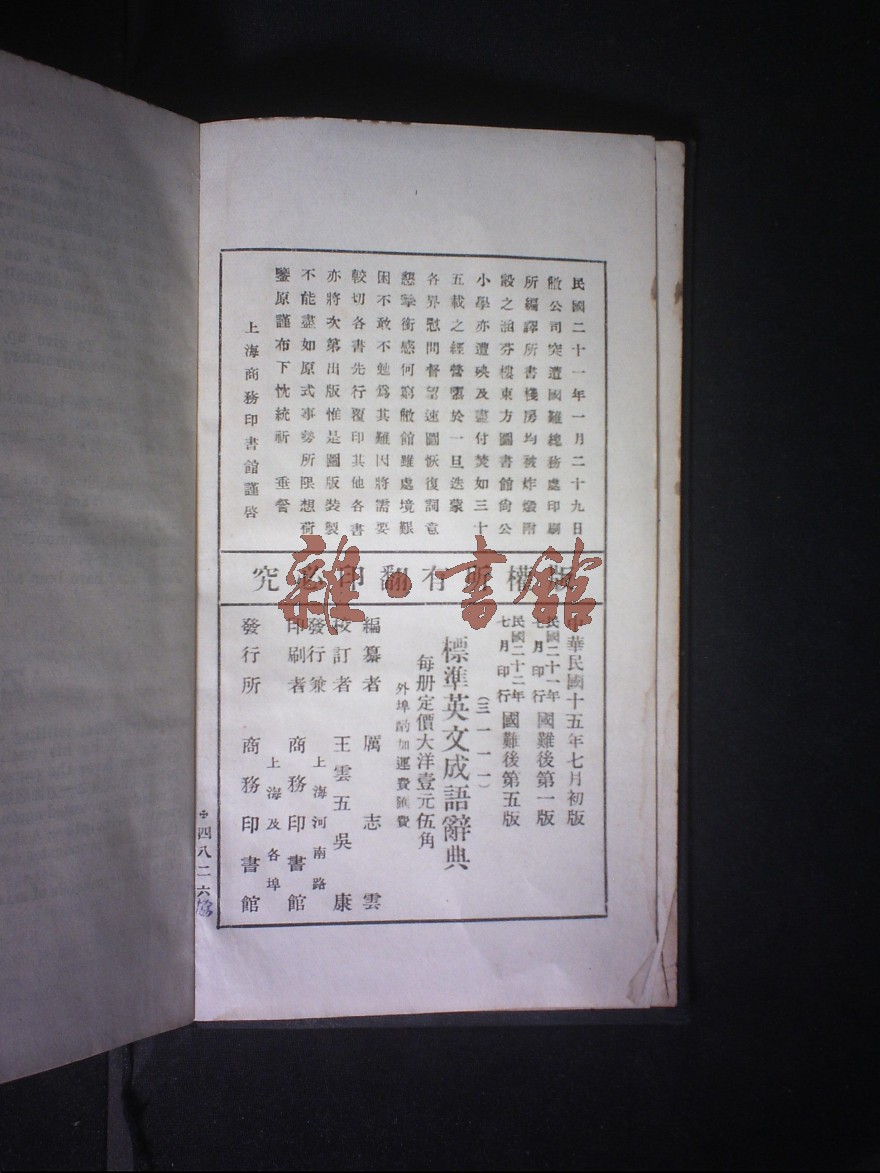 民國二十一年一月二十九日
敝公司突遭國難總務處印刷
所編譯所書棧房均被炸燬附
設之涵芬樓東方圖書館尙公
小學亦遭殃及盡付焚如三十
五載之經營隳於一旦迭蒙
各界慰問督望速圖恢復詞意
懇摯銜感何窮敝館雖處境艱
困不敢不勉爲其難因將需要
較切各書先行覆印其他各書
亦將次第出版惟是圖版裝製
不能盡如原式事勢所限想荷
鑒原謹布下忱統祈 垂詧
上海商務印書館謹啓
版權所有翻印必究
中華民國十五年七月初版
民國二十一年七月印行 國難後第一版
民國二十二年七月印行 國難後第五版
(三一一一)
標準英文成語辭典
每册定價大洋壹元伍角
外埠酌加運費匯費
編纂者 厲志雲
校訂者 王雲五 吳康
發行兼印刷者 上海河南路 商務印書館
發行所 上海及各埠 商務印書館
四八二六
雜·書館